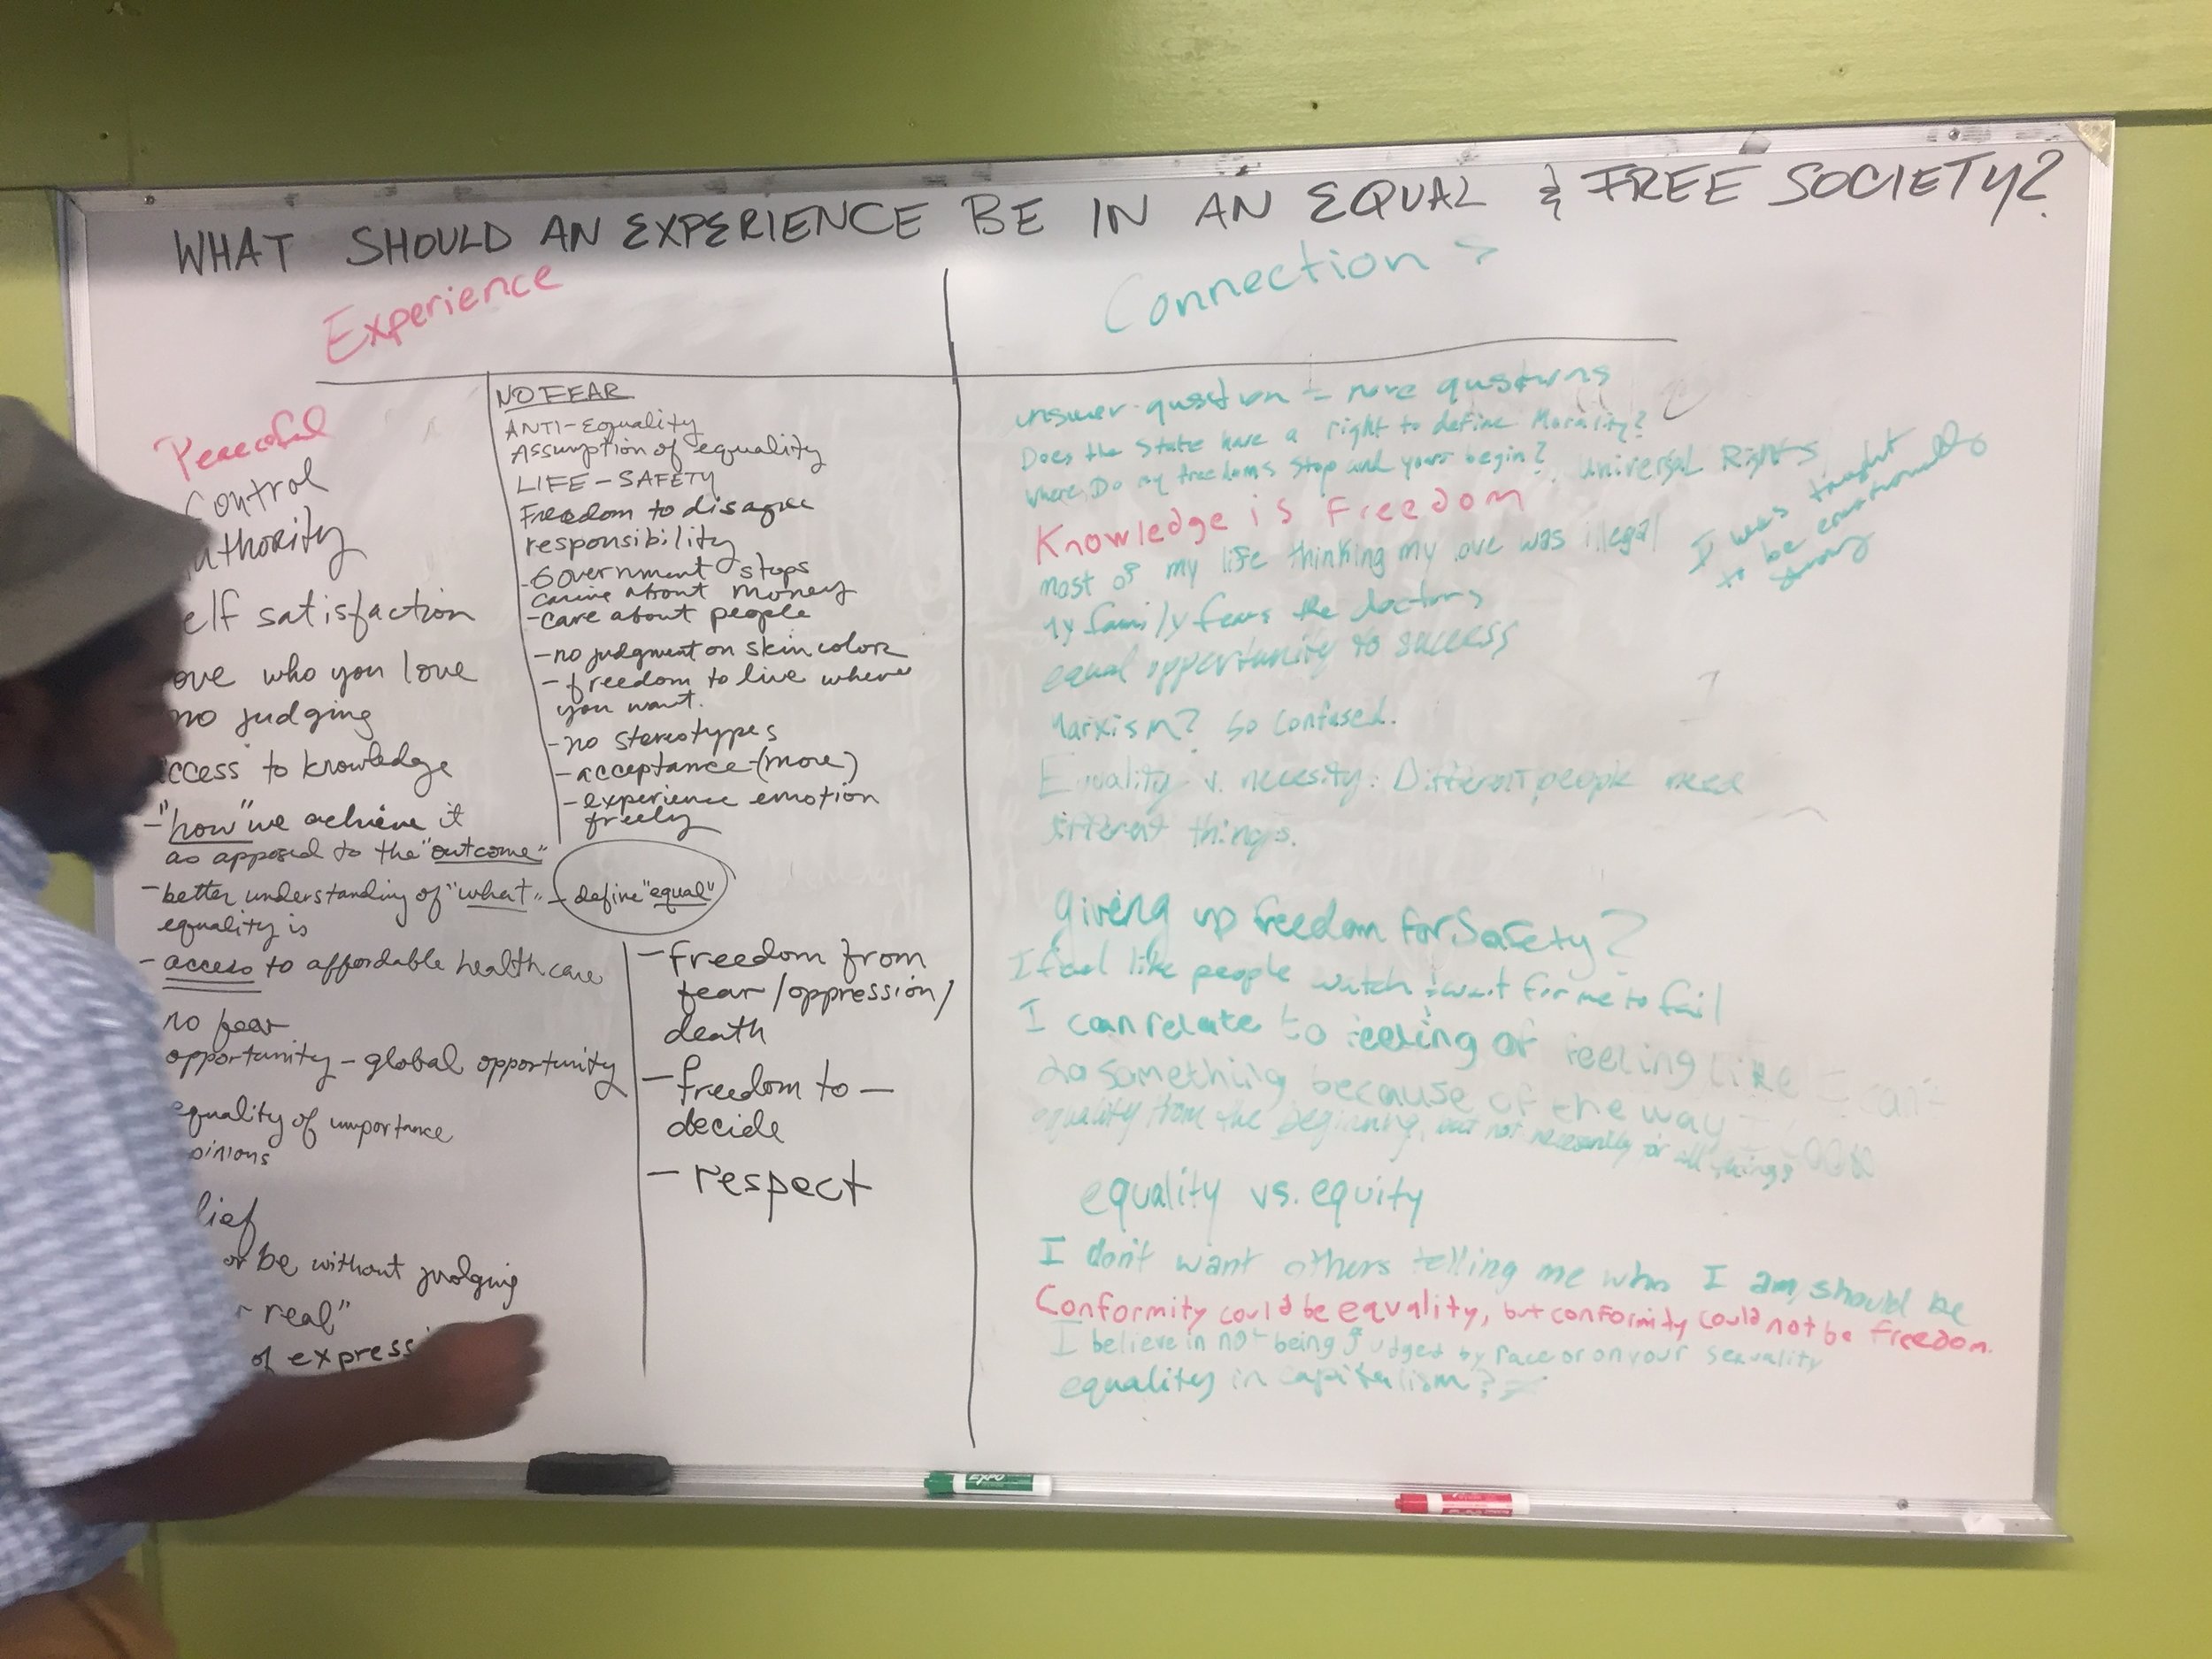 WHAT SHOULD AN EXPERIENCE BE IN AN EQUAL & FREE SOCIETY?
Experience
Peaceful
Control
uthority
elf satisfaction
ove who you love
no judging
ccess to knowledge
-"how" we achieve it
as apposed to the "outcome"
- better understanding of "what" - define "equal"
equality is
- access to affordable health care
no fear
opportunity - global opportunity
equality of importance
pinions
lief
or be without judging
r real"
of express
NO FEAR
ANTI-Equality
Assumption of equality
LIFE-SAFETY
Freedom to disagree
responsibility
-Government stops
caring about money
-care about people
-no judgment on skin color
-freedom to live where
you want.
-no stereotypes
-acceptance-(more)
-experience emotion
freely
-freedom from
fear/oppression/
death
-freedom to-
decide
-respect
Connection >
answer question = more questions
Does the State have a right to define Morality?
Where Do my freedoms stop and yours begin? Universal Rights
Knowledge is Freedom
most of my life thinking my love was illegal
I was taught
to be emotionally
strong
my family fears the doctors
equal opportunity to success
Marxism? So confused.
Equality v. necesity: Different people need
different things.
giving up freedom for Safety?
I feel like people watch & wait for me to fail
I can relate to feeling of feeling like I can't
do something because of the way I look
equality from the beginning, but not necessarily for all things
equality vs. equity
I don't want others telling me who I am, should be
Conformity could be equality, but conformity could not be freedom.
I believe in not being judged by race or on your sexuality
equality in capitalism?
EXPO